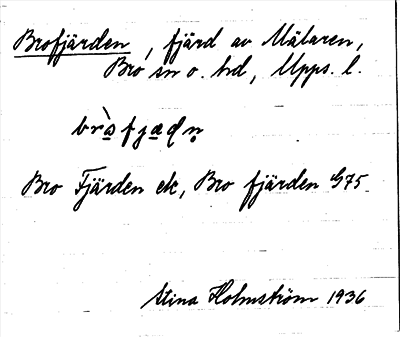 Brofjärden, fjärd av Mälaren,
Bro sn o. hd, Upps. l.
bròfjædn̥
Bro Fjärden etc, Bro fjärden G75.
Stina Holmström 1936